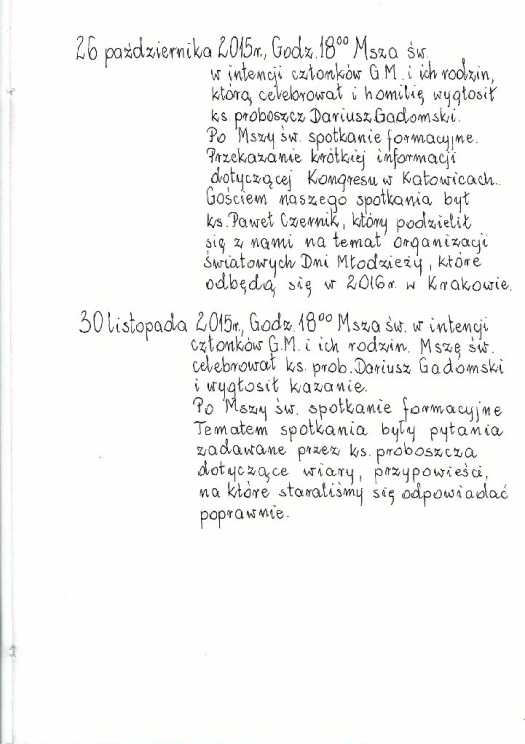 26 października 2015r., Godz. 18⁰⁰ Msza św.
w intencji członków G.M. i ich rodzin,
którą celebrował i homilię wygłosił
ks proboszcz Dariusz Gadomski.
Po Mszy św. spotkanie formacyjne.
Przekazanie krótkiej informacji
dotyczącej Kongresu w Katowicach.
Gościem naszego spotkania był
ks. Paweł Czernik, który podzielił
się z nami na temat organizacji
Światowych Dni Młodzieży, które
odbędą się w 2016r. w Krakowie.
30 listopada 2015r., Godz. 18⁰⁰ Msza św. w intencji
członków G.M. i ich rodzin. Mszę św.
celebrował ks. prob. Dariusz Gadomski
i wygłosił kazanie.
Po Mszy św. spotkanie formacyjne
Tematem spotkania były pytania
zadawane przez ks. proboszcza
dotyczące wiary, przypowieści,
na które staraliśmy się odpowiadać
poprawnie.